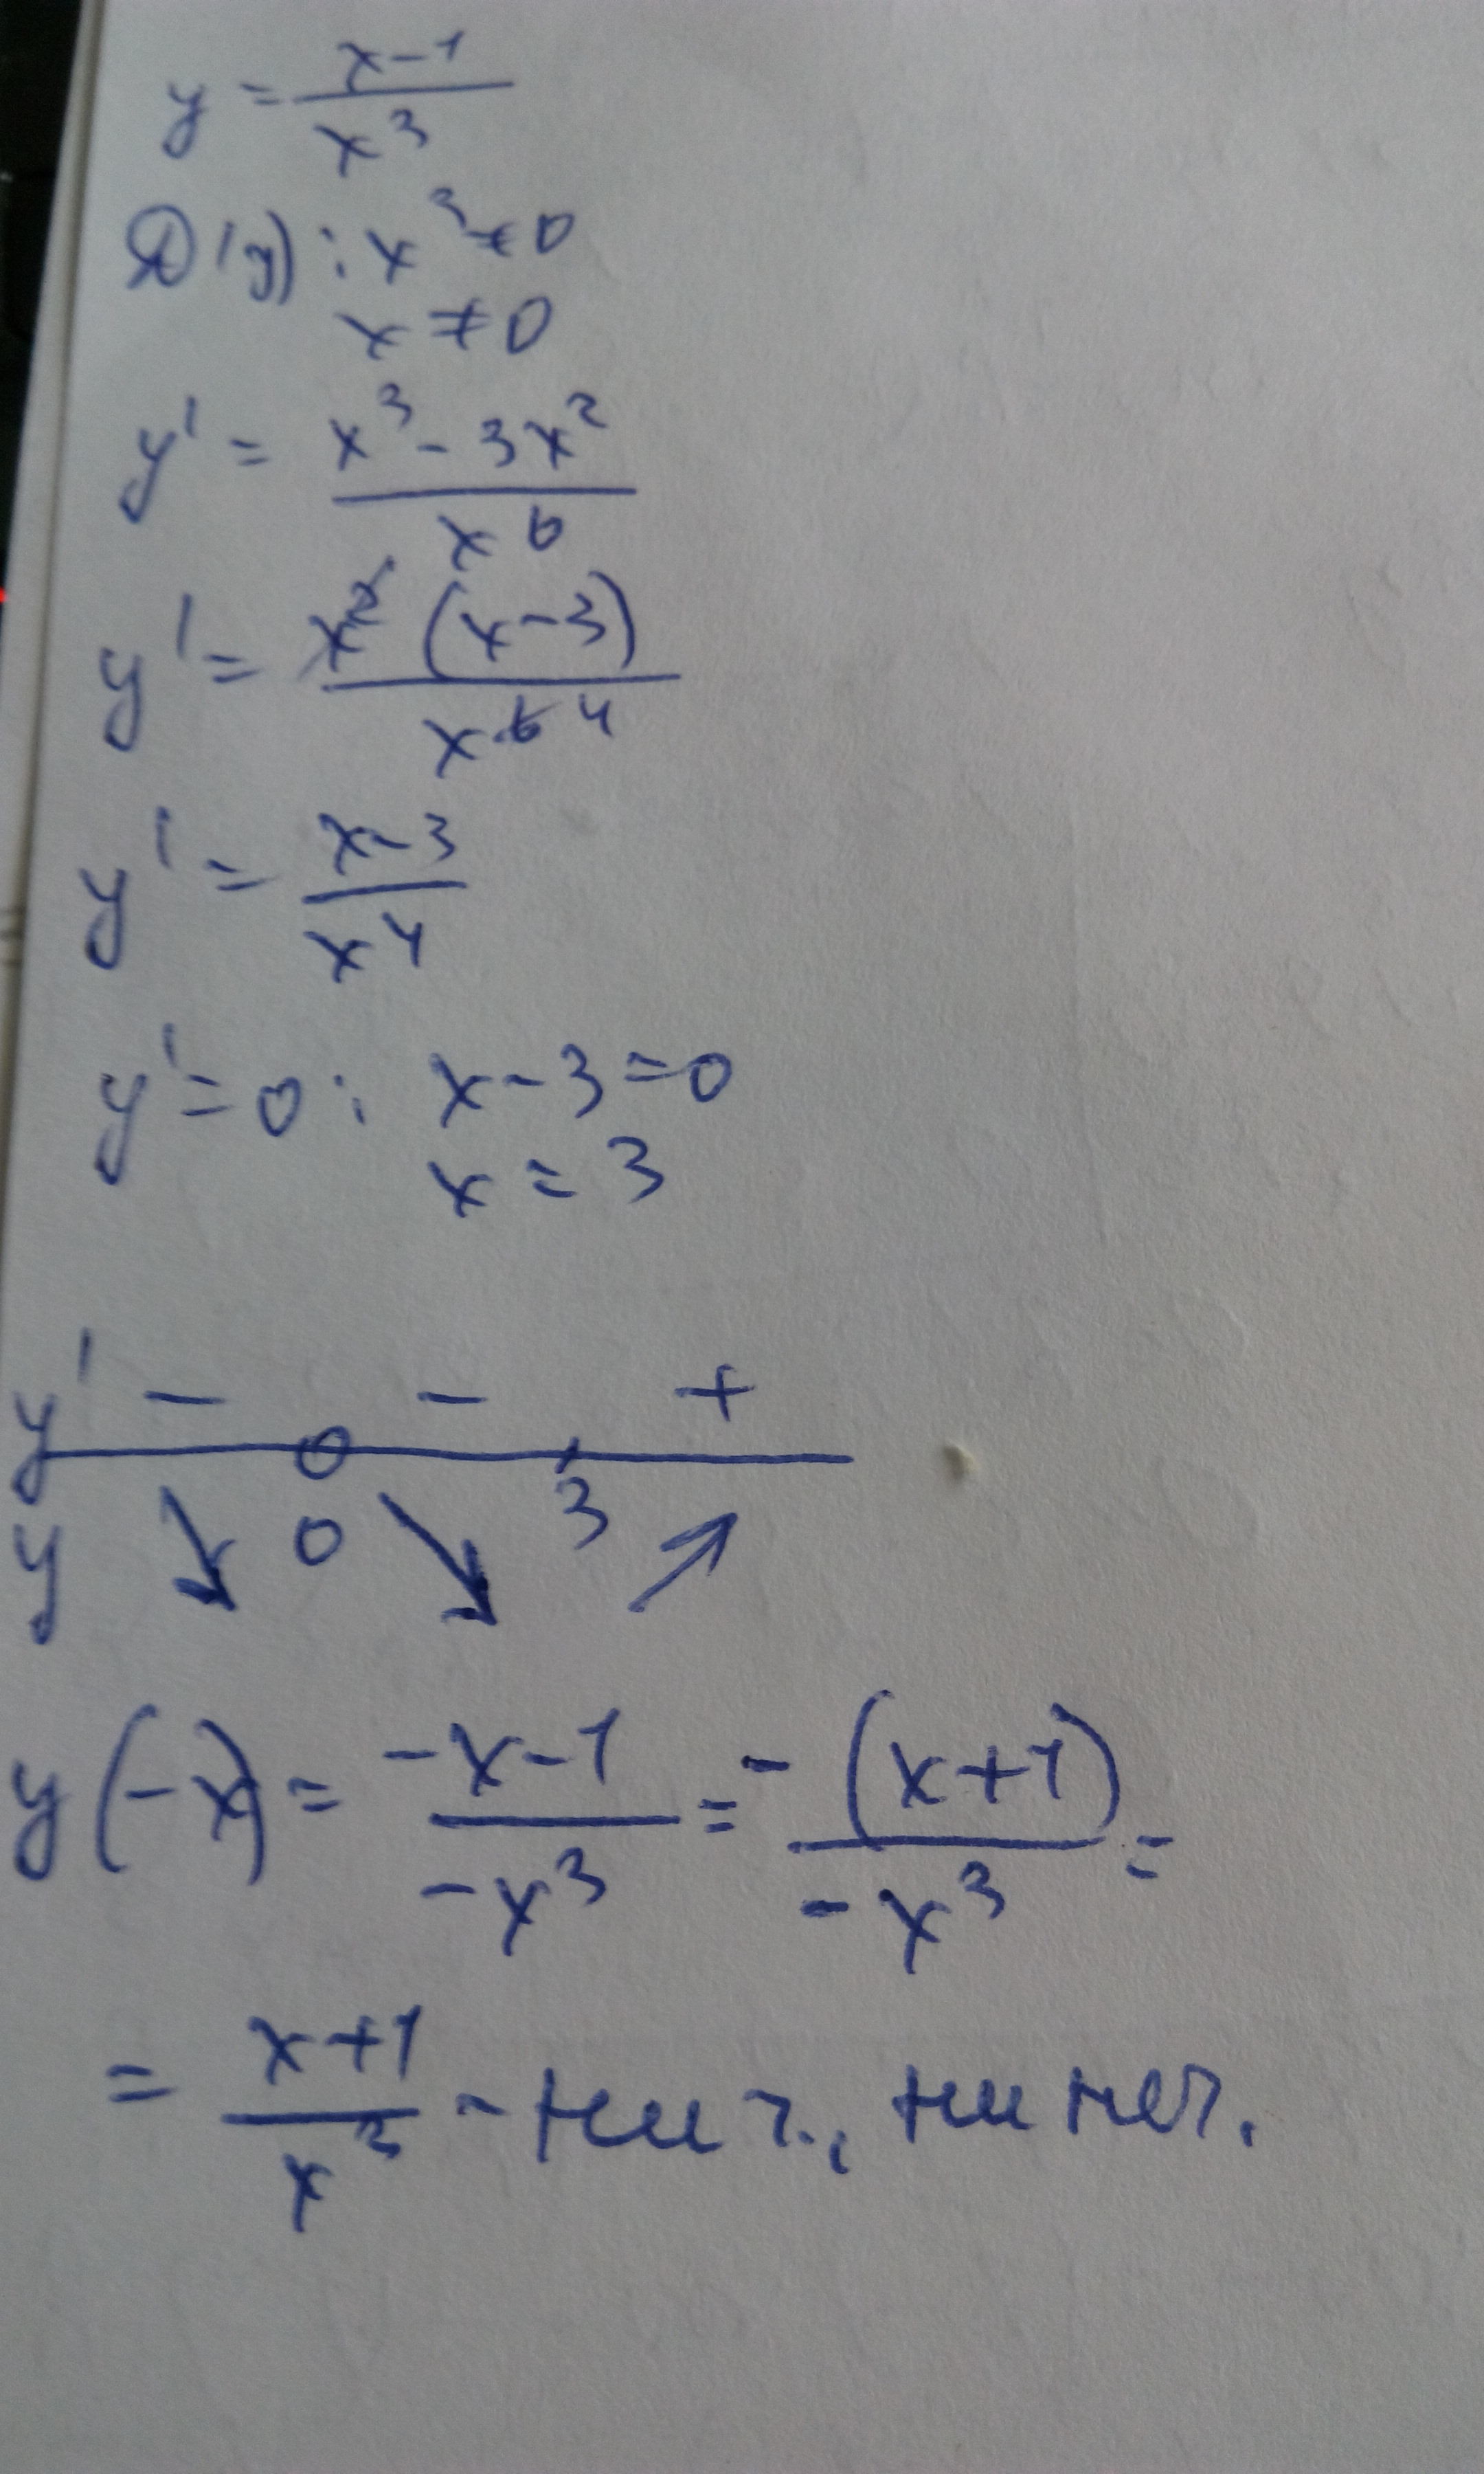 y = (x-1)/x³
D(y): x³ ≠ 0
x ≠ 0
y' = (x³ - 3x²)/x⁶
y' = x²(x-3)/x⁶ ⁴
y' = (x-3)/x⁴
y' = 0: x - 3 = 0
x = 3
y' - - +
0 3
y ↘ ↘ ↗
y(-x) = (-x-1)/(-x³) = -(x+1)/(-x³) =
= (x+1)/x³ - ни ч., ни неч.